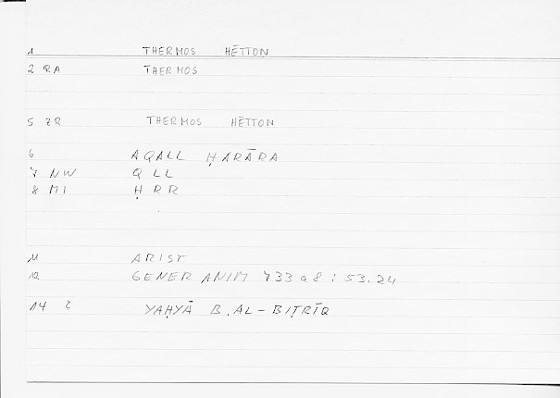 1 THERMOS HĒTTON
2 RA THERMOS
5 ZR THERMOS HĒTTON
6 AQALL ḤARĀRA
7 NW QLL
8 MI ḤRR
11 ARIST
12 GENER ANIM 733a8 : 53.24
14 2 YAḤYĀ B. AL-BIṬRĪQ